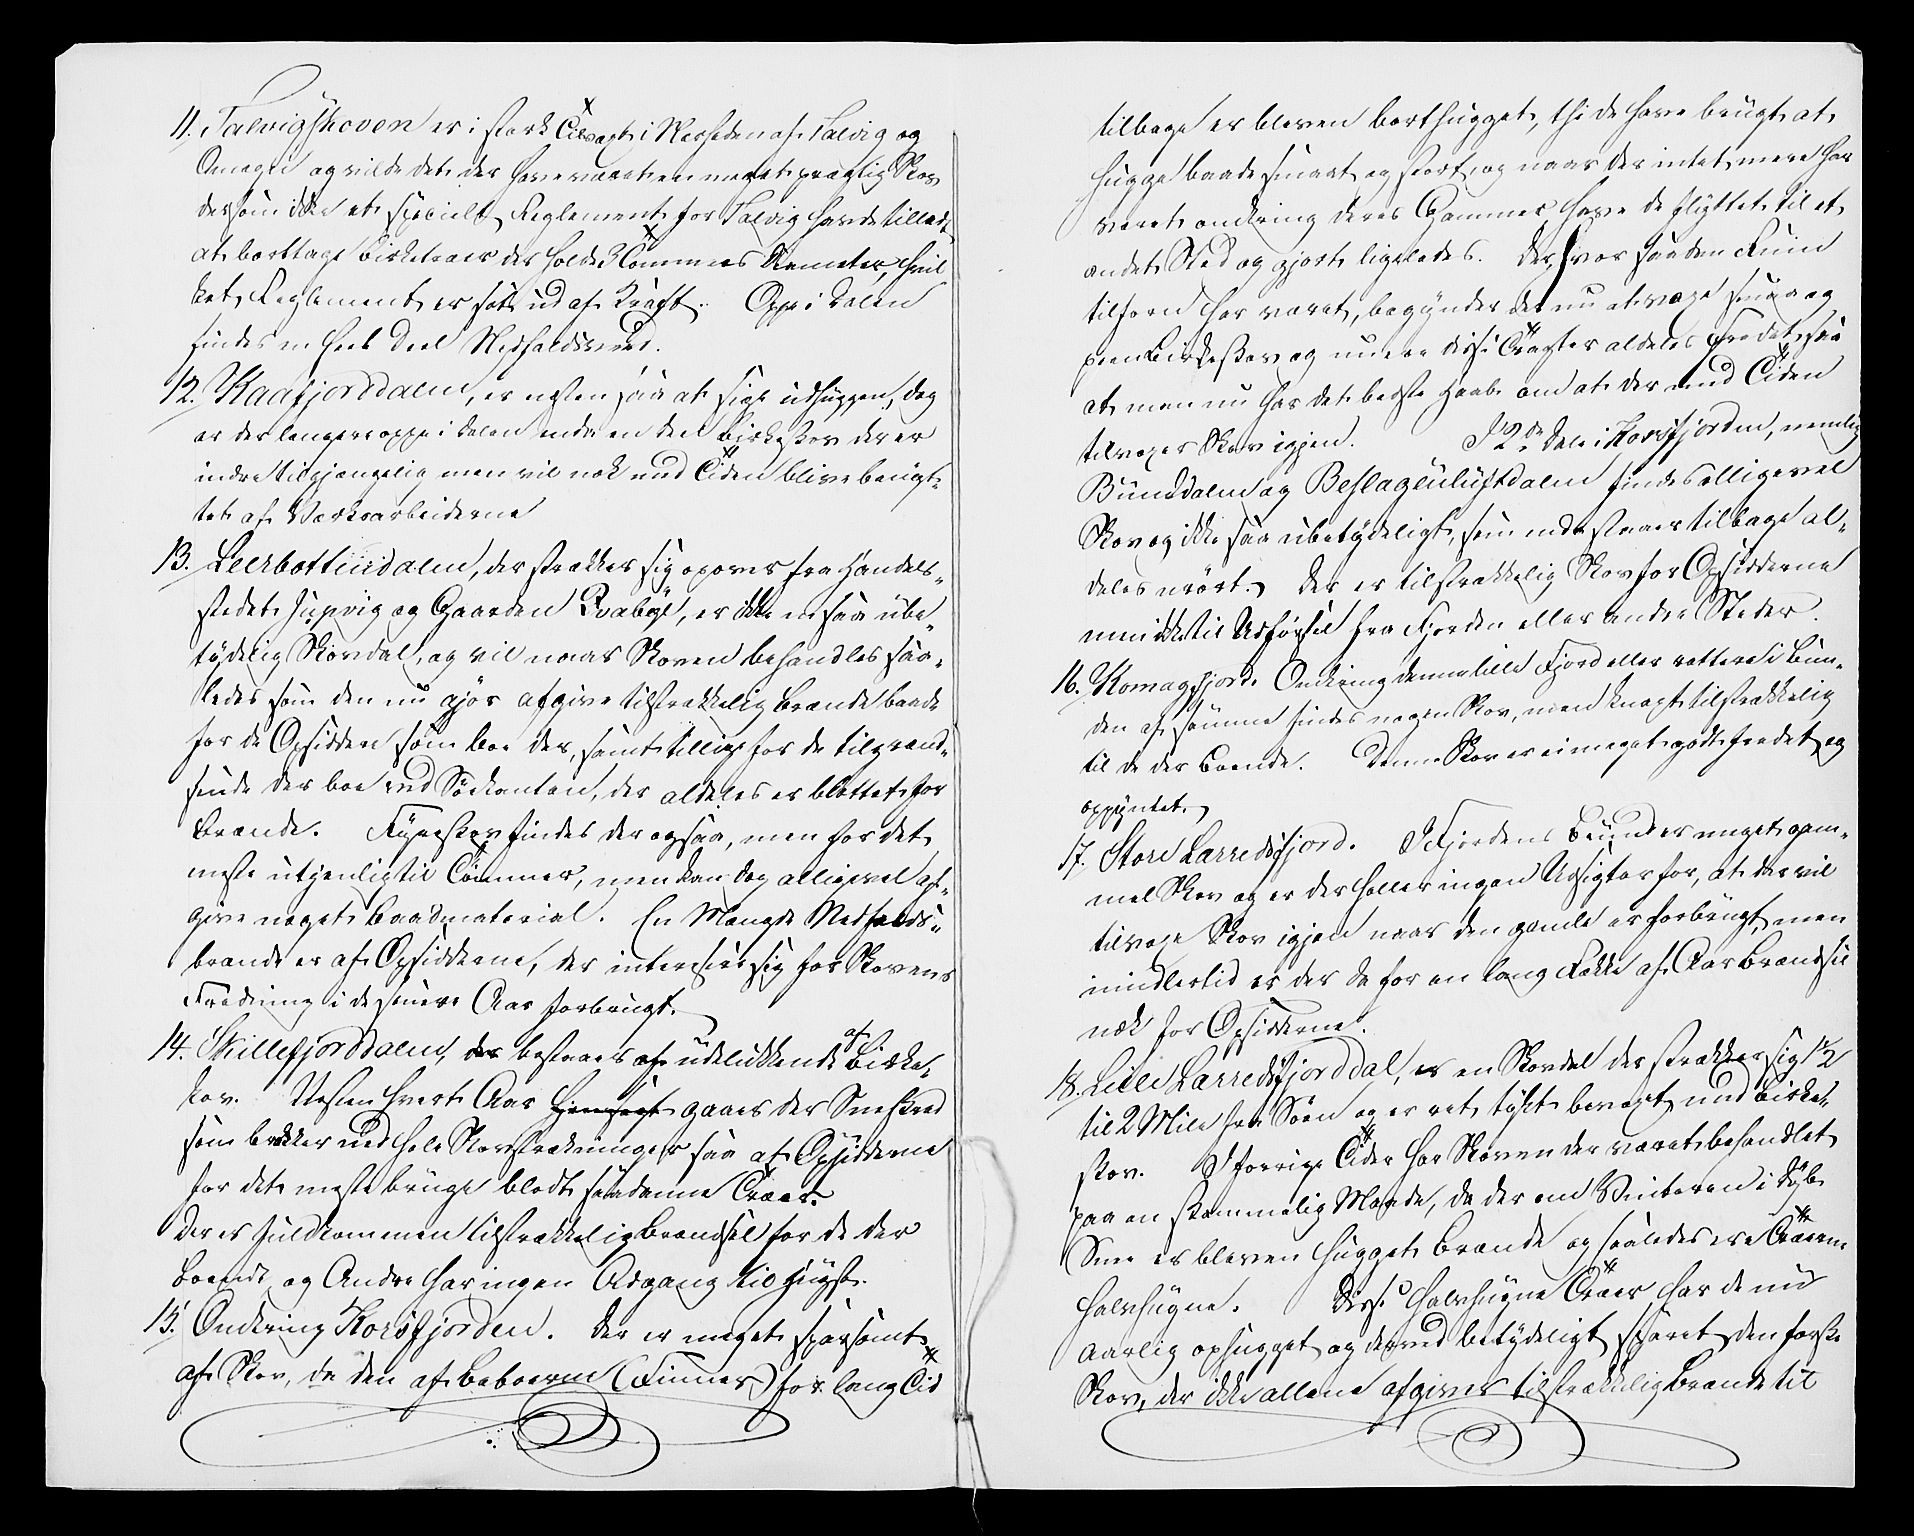 11. Talvigskoven er i stærk Tilvæxt i Nærheden af Talvig og
Omegn og vilde det der have været en meget prægtig Skov
dersom ikke et specielt Reglement for Talvig havde tilladt
at borttage Birketræer der holde 3 Tommers Diameter, hvil
ket Reglement er sat ud af Kraft. Oppe i Dalen
findes en heel Deel Nedfaldsved.
12. Kaafjorddalen, er næsten saa at sige udhuggen, dog
er der længere oppe i Dalen endnu en Deel Birkeskov der er
mindre tilgjængelig men vil nok med Tiden blive benyt-
tet af Værksarbeiderne
13. Leerbottendalen, der strækker sig opover fra Handels-
stedet Jupvig og Gaarden Qvabye, er ikke en saa ube-
tydelig Skovdal, og vil naar Skoven behandles saa-
ledes som den nu gjør afgive tilstrækkelig Brænde baade
for de Opsiddere som boe der, samt tillige for de tilgrænd-
sende der boe ved Södkanten, der aldeles er blottet for
Brænde. Fyrreskov findes der ogsaa, men for det
meste utjenlig til Tømmer, men kan dog alligevel af-
give noget Baadmaterial. En Mængde Nedfalds-
brænde er af Opsidderne, der interesserer sig for Skovens
Fredning i de senere Aar forbrugt.
14. Skillefjorddalen, der bestaaer af udelukkende af Birke-
skov. Næsten hvert Aar gaaer der Sneskred
som brækker ned hele Skovstrækninger saa at Opsidderne
for det meste bruge blodt saadanne Træer.
Der er fuldkommen tilstrækkelig Brændsel for de der
boende og Andre har ingen Adgang til Hugst.
15. Omkring Korsfjorden. Der er meget sparsomt
af Skov, da den af Beboerne (Finner) for lang Tid
tilbage er bleven borthugget, thi de have brugt at
hugge baade smaat og stort, og naar der intet mere har
været omkring deres Gammer have de flyttet til et
andet Sted og gjort ligeledes. Der, hvor saadan Ruin
tilforn har været, begynder det nu at voxe smaa og
pæn Birkeskov og nu ere disse Tragter aldeles fredet saa
at man nu har det bedste Haab om at der med Tiden
tilvoxer Skov igjen. I 2de Dale i Korsfjorden, nemlig
Bunddalen og Beslagenluftdalen findes alligevel
Skov og ikke saa ubetydeligt, som endnu staaer tilbage al-
deles urört. Der er tilstrækkelig Skov for Opsidderne
men ikke til Udførsel fra Fjorden eller andre Steder.
16. Komagfjord. Omkring denne lille Fjord eller rettere i Bun-
den af samme findes nogen Skov, men knapt tilstrækkelig
til de der Boende. Denne Skov er ei meget godt fredet og
oppyntet.
17. Store Lærredsfjord. I Fjordens Bund er meget gam-
mel Skov og er der heller ingen Udsigter for, at der vil
tilvoxe Skov igjen naar den gamle er forbrugt, men
imidlertid er der da for en lang Række af Aar Brændsel
nok for Opsidderne.
18. Lille Lærredsfjorddal, er en Skovdal der strækker sig 1½
til 2 Mile fra Søen og er ret tykt bevoxt med Birke-
skov. I forrige Tider har Skoven der været behandlet
paa en skammelig Maade, da der om Vinteren i dyb
Snee er bleven hugget Brænde og saaledes ere Træerne
halvhugne. Disse halvhugne Træer har de nu
aarlig ophugget og derved betydeligt sparet den færske
Skov, der ikke allene afgives tilstrækkelig Brænde til